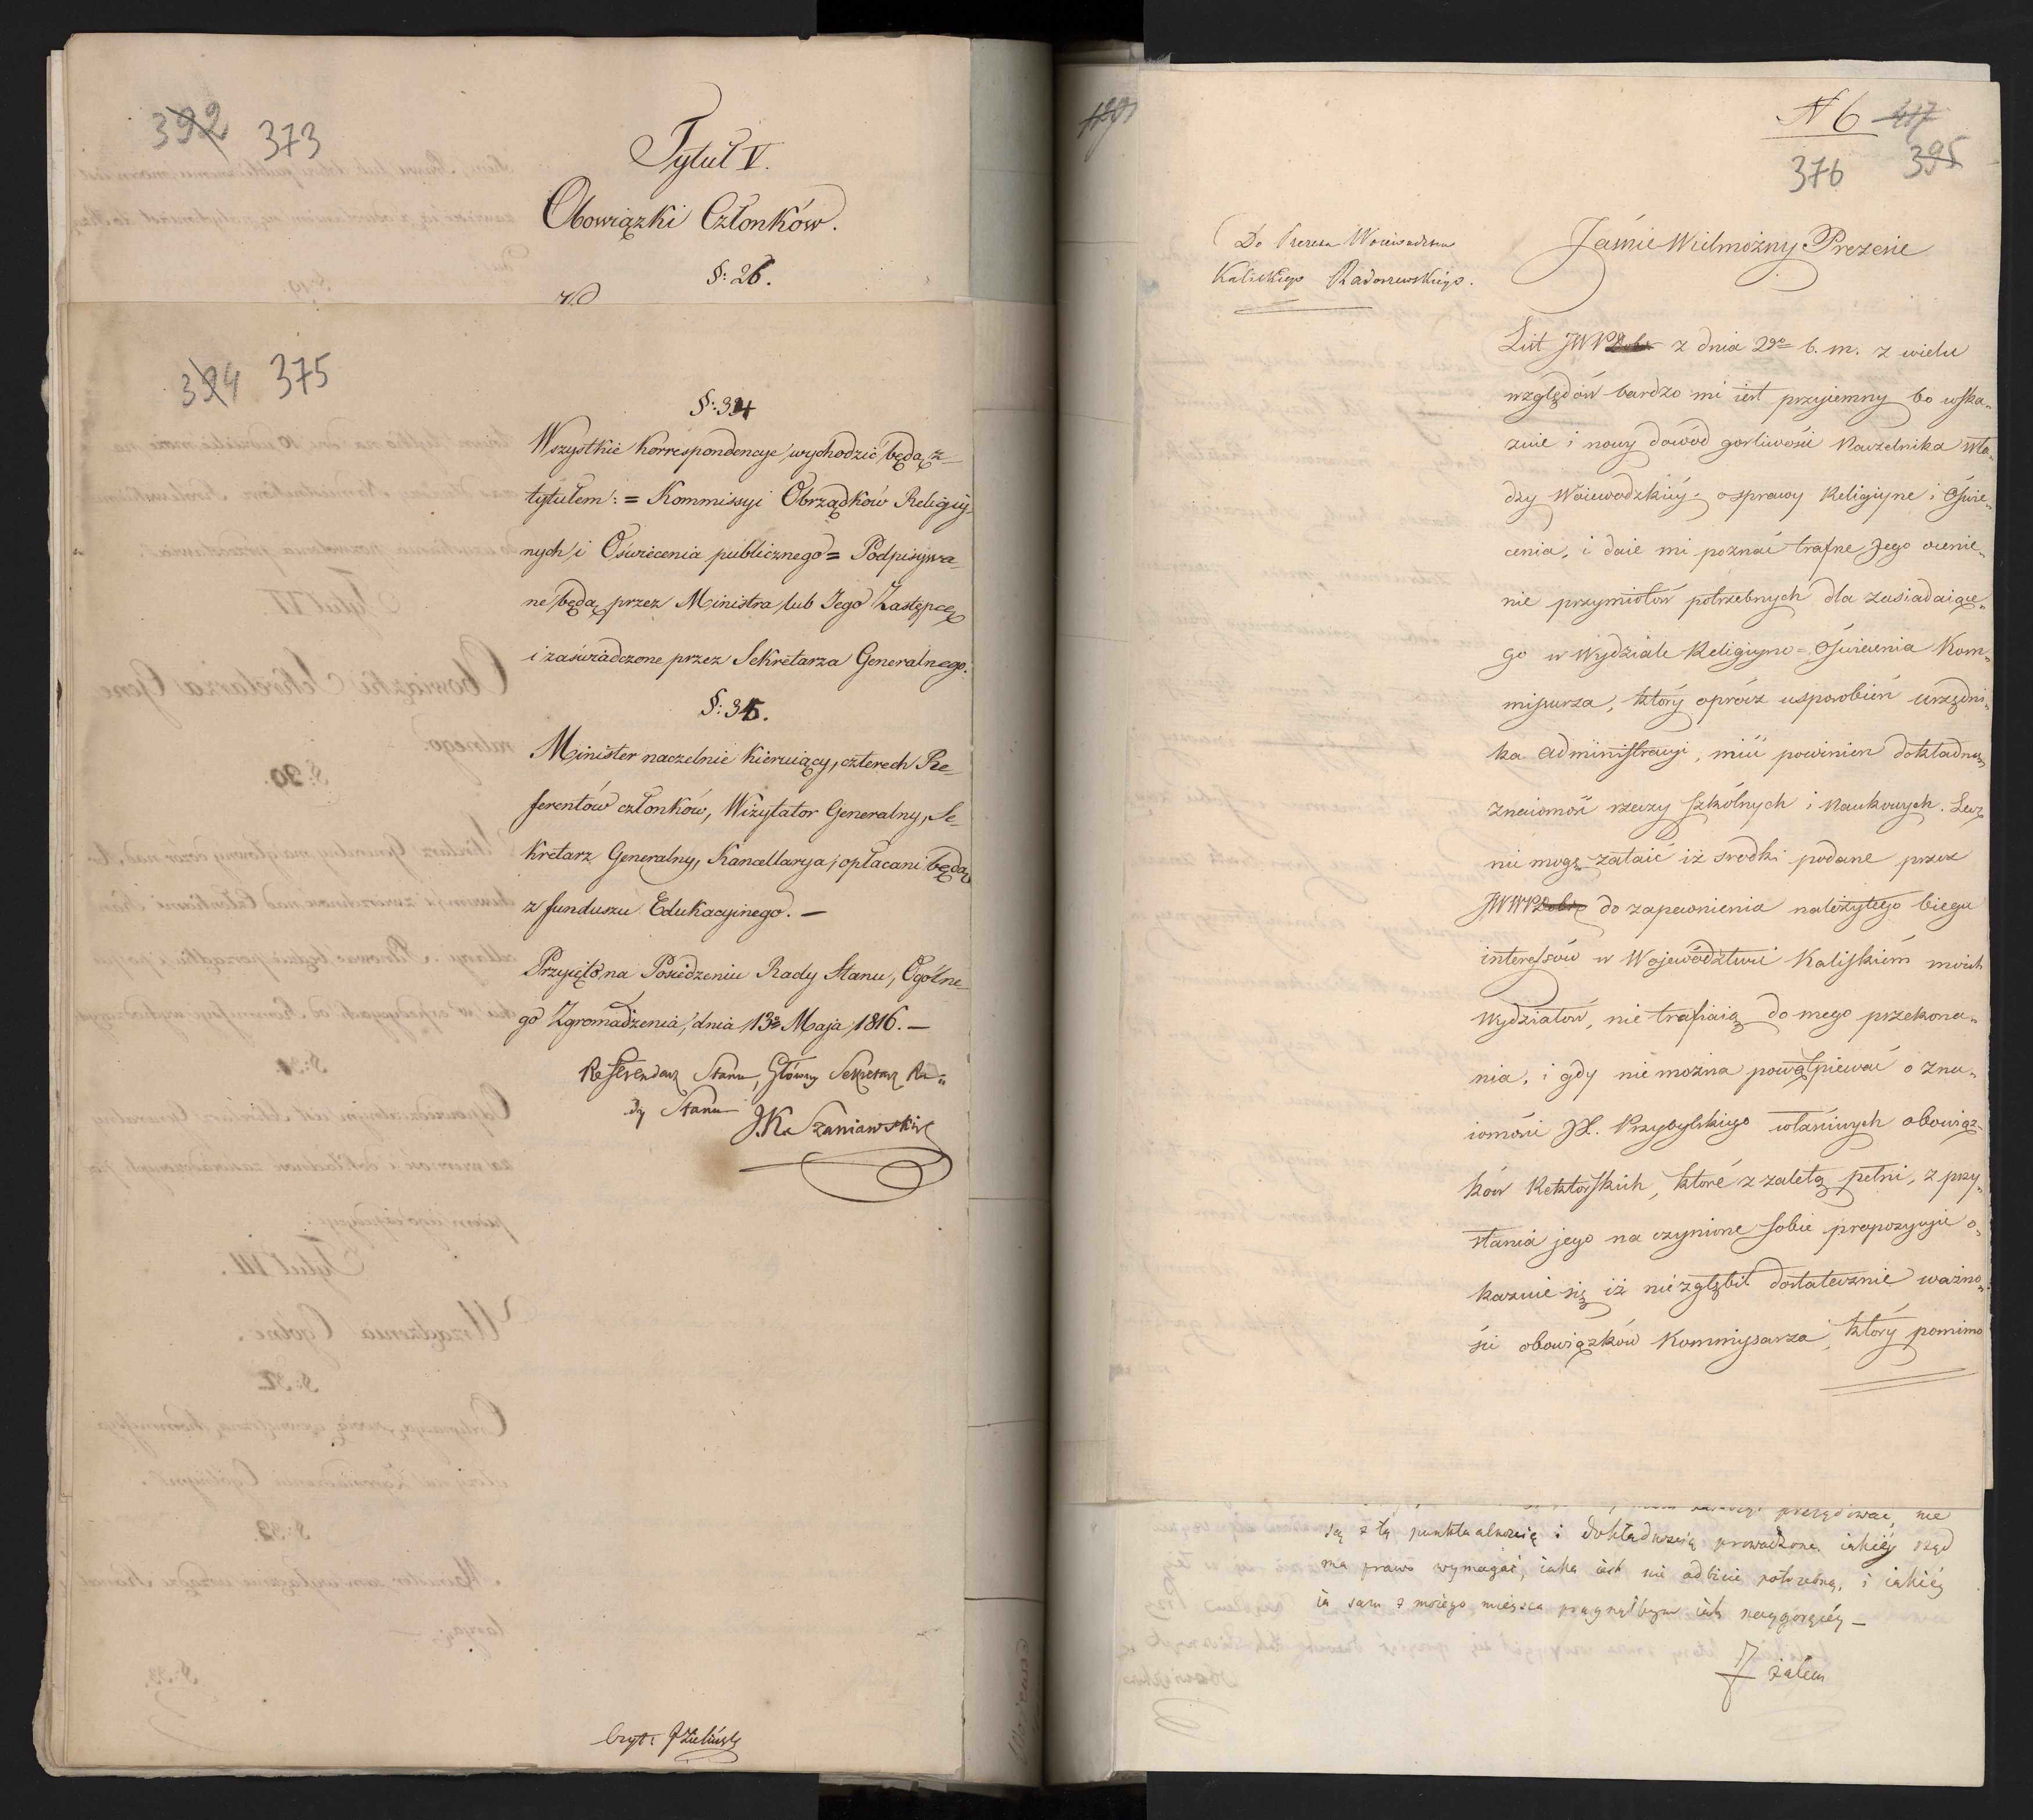 392 373
Tytuł V.
Obowiązki Członków.
§: 26.
394 375
§: 34
Wszystkie korrespondencye wychodzić będą z
tytułem: = Kommissyi Obrządków Religiy-
nych i Oświecenia publicznego = Podpisywa-
ne będą przez Ministra lub Jego Zastępcę
i zaświadczone przez Sekretarza Generalnego.
§: 35.
Minister naczelnie kieruiący, czterech Re-
ferentów członków, Wizytator Generalny, Se-
kretarz Generalny, Kancellarya, opłacani będą
z funduszu Edukacyinego. —
Przyięto na Posiedzeniu Rady Stanu, Ogólne-
go Zgromadzenia, dnia 13º Maja 1816. —
Referendarz Stanu, Główny Sekretarz Ra-
dy Stanu
J.K. Szaniawski
czyt: Zieliński
N 6 417
376 395
Do Prezesa Woiewództwa
Kaliskiego Radoszewskiego.
Jaśnie Wielmożny Prezesie
List JWP z dnia 29º b. m. z wielu
względów bardzo mi iest przyiemny bo wska„
zuie i nowy dowód gorliwości Naczelnika Wła„
dzy Woiewodzkiéy o sprawy Religiyne i Oświe„
cenia, i daie mi poznać trafne Jego ocenie„
nie przymiotów potrzebnych dla zasiadaiące„
go w Wydziale Religiyno = Oświecenia Kom„
missarza, który oprócz usposobień urzędni„
ka administracyi, mieć powinien dokładną
znaiomość rzeczy szkólnych i Naukowych. Lecz
nie mogę zataić iż srodki podane przez
JWWP do zapewnienia należytego biegu
interessów w Wojewódźtwie Kaliskiém moich
Wydziałów, nie trafiaią do mego przekona„
nia, i gdy nie można powątpiewać o zna„
iomości JX. Przybylskiego właściwych obowiąz„
ków Rektorskich, które z zaletą pełni, z przy„
stania jego na czynione sobie propozycyje o„
kazuie się iż niezgłębił dostatecznie ważno„
ści obowiązków Kommissarza, który pomimo
nie
są z tą punktualnością i dokładnością prowadzone iakiéy rząd
ma prawo wymagać, iaka iest nie odbicie potrzebną, i iakiéy
ia sam z moiego mieysca pragnąłbym iak naygoręcéy —
żalem